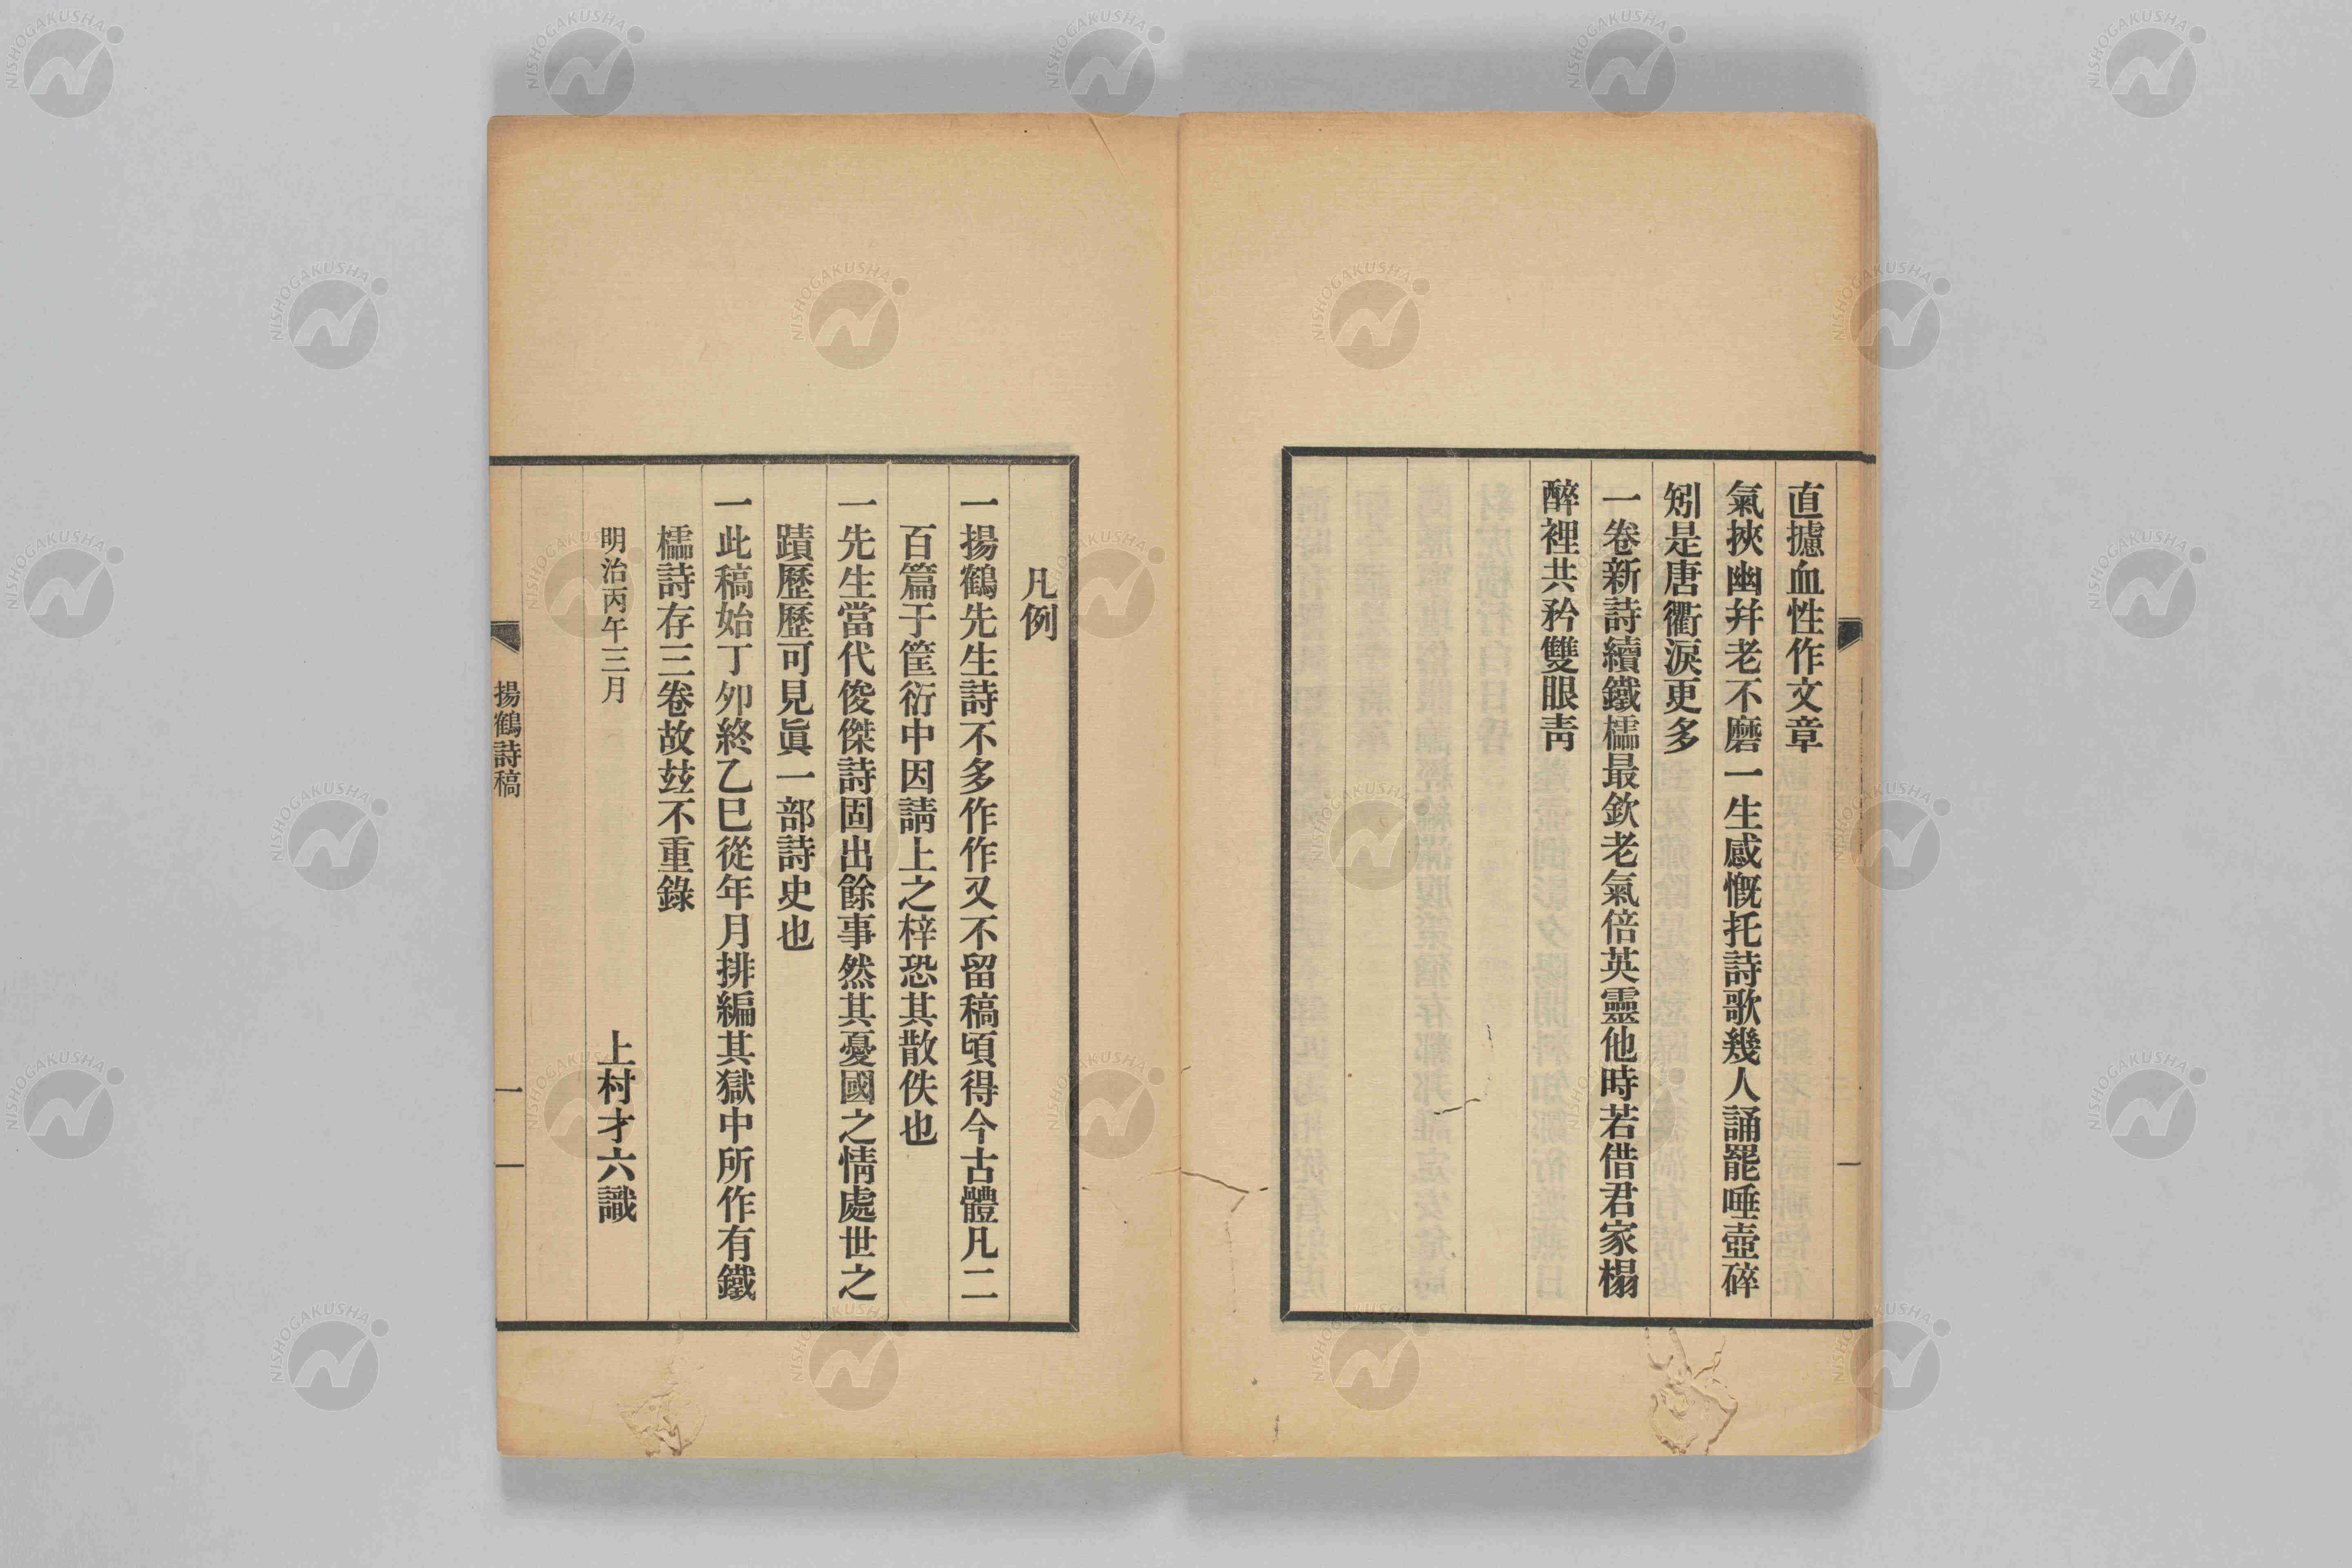 直攄血性作文章
氣挾幽幷老不磨一生感慨托詩歌幾人誦罷唾壺碎
矧是唐衢淚更多
一卷新詩續鐵檽最欽老氣倍英靈他時若借君家榻
醉裡共矜雙眼靑
凡例
一揚鶴先生詩不多作作又不留稿頃得今古體凡二
百篇于筐衍中因請上之梓恐其散佚也
一先生當代俊傑詩固出餘事然其憂國之情處世之
蹟歷歷可見眞一部詩史也
一此稿始丁夘終乙巳從年月排編其獄中所作有鐵
檽詩存三卷故玆不重錄
明治丙午三月
上村才六識
揚鶴詩稿
一
NISHOGAKUSHA